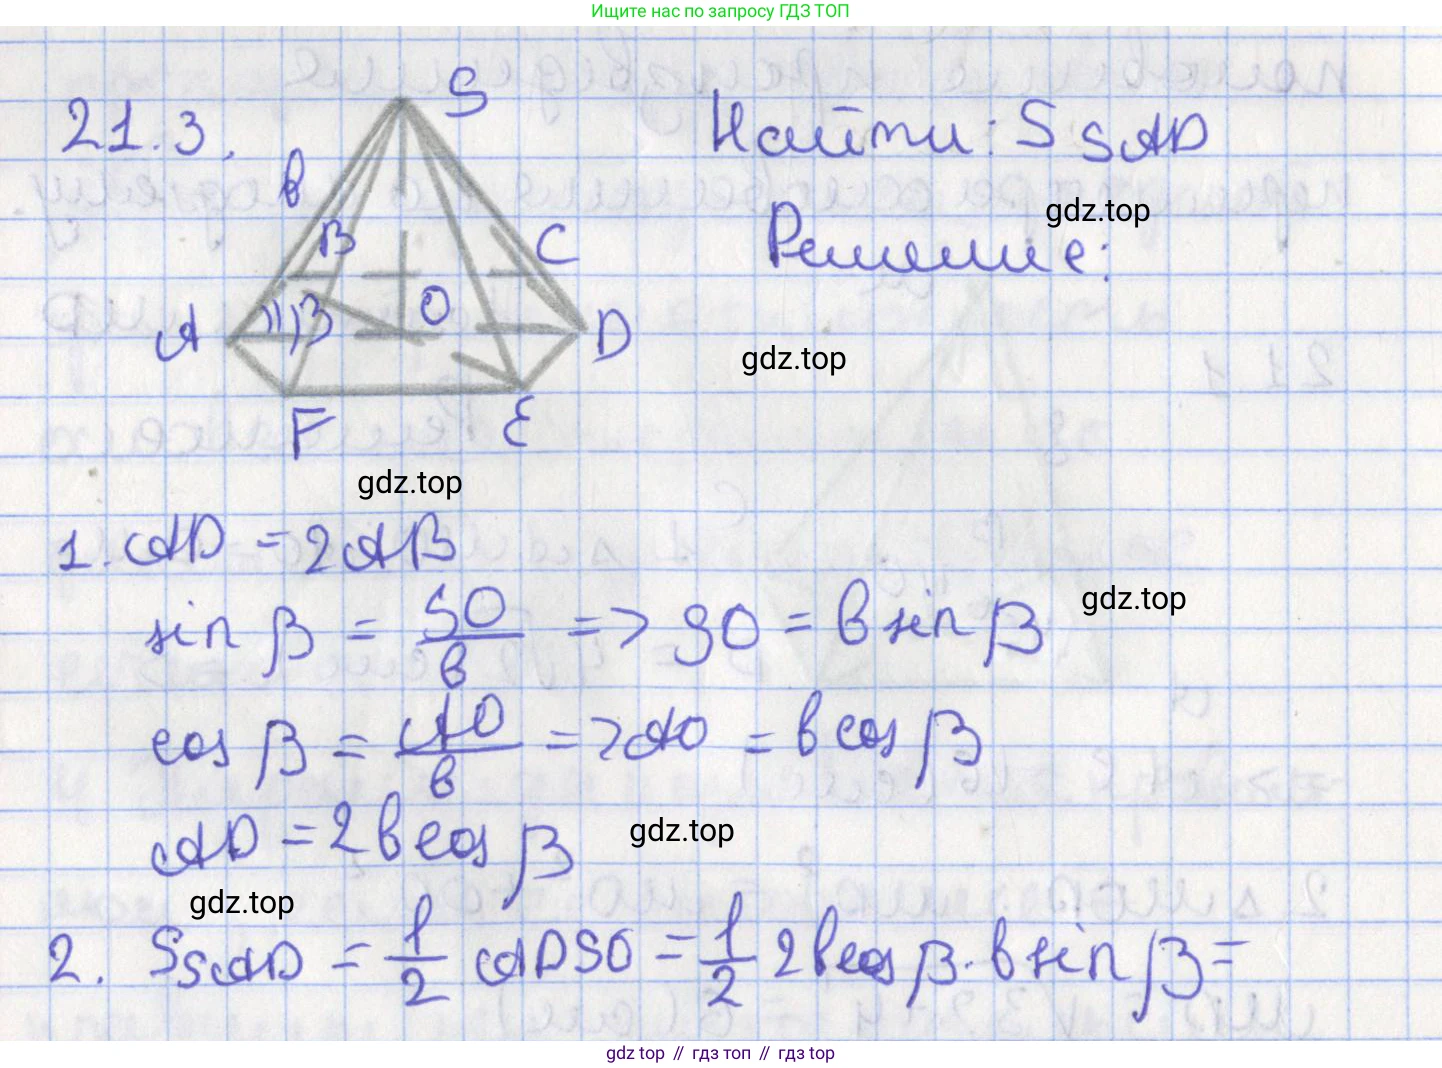 Ищите нас по запросу ГДЗ ТОП
21.3.
S
в
B
C
A
β
O
D
F
E
Найти: S SAD
gdz.top
Решение:
gdz.top
gdz.top
1. AD = 2AB
sin β = SO/в => SO = в sin β
gdz.top
cos β = AO/в => AO = в cos β
AD = 2в cos β
gdz.top
gdz.top
2. S SAD = 1/2 AD SO = 1/2 2в cos β · в sin β =
gdz top // гдз топ // гдз top